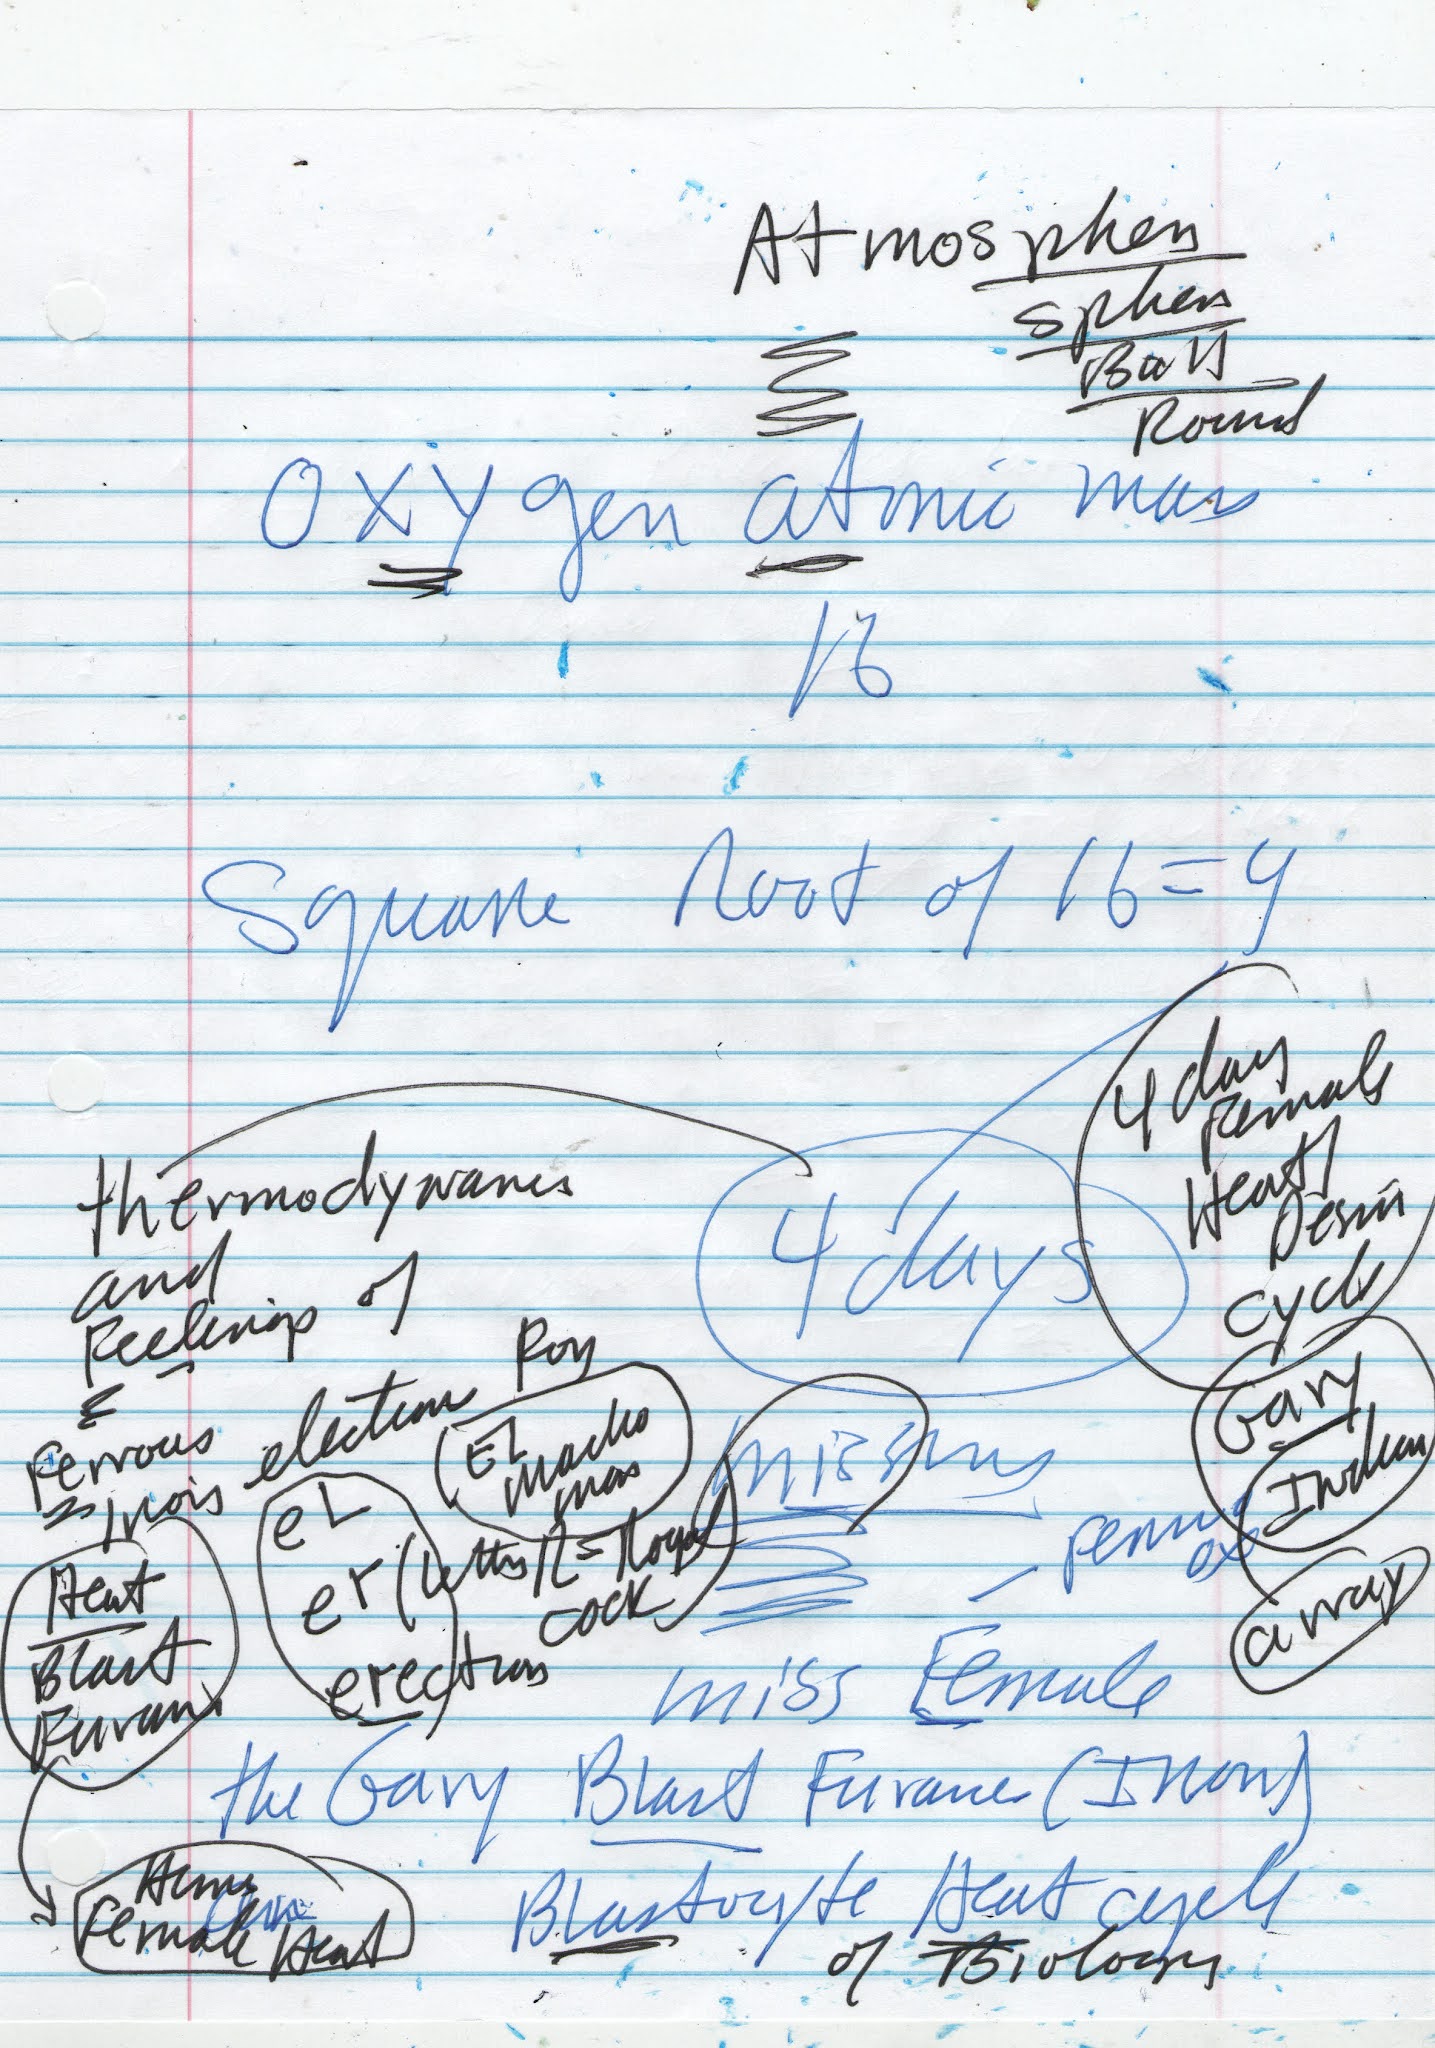 Atmosphere
sphere
Ball
Round
Oxygen atomic mass
16
Square Root of 16 = 4
4 day
Female
Heat/
Desire
cycle
thermodynamics
and
Feelings of
4 days
Ferrous
Irois electron
Roy
El
Macho
man
Gary
Indian
array
missing
eL
er (letters) R = Royal
cock
erections
Heat
Blast
Furnace
- Ferrous
ox
miss Female
the Gary Blast Furnace (Iron)
Heme
Female Heat
Blastocyte Heat cycle
of Biology